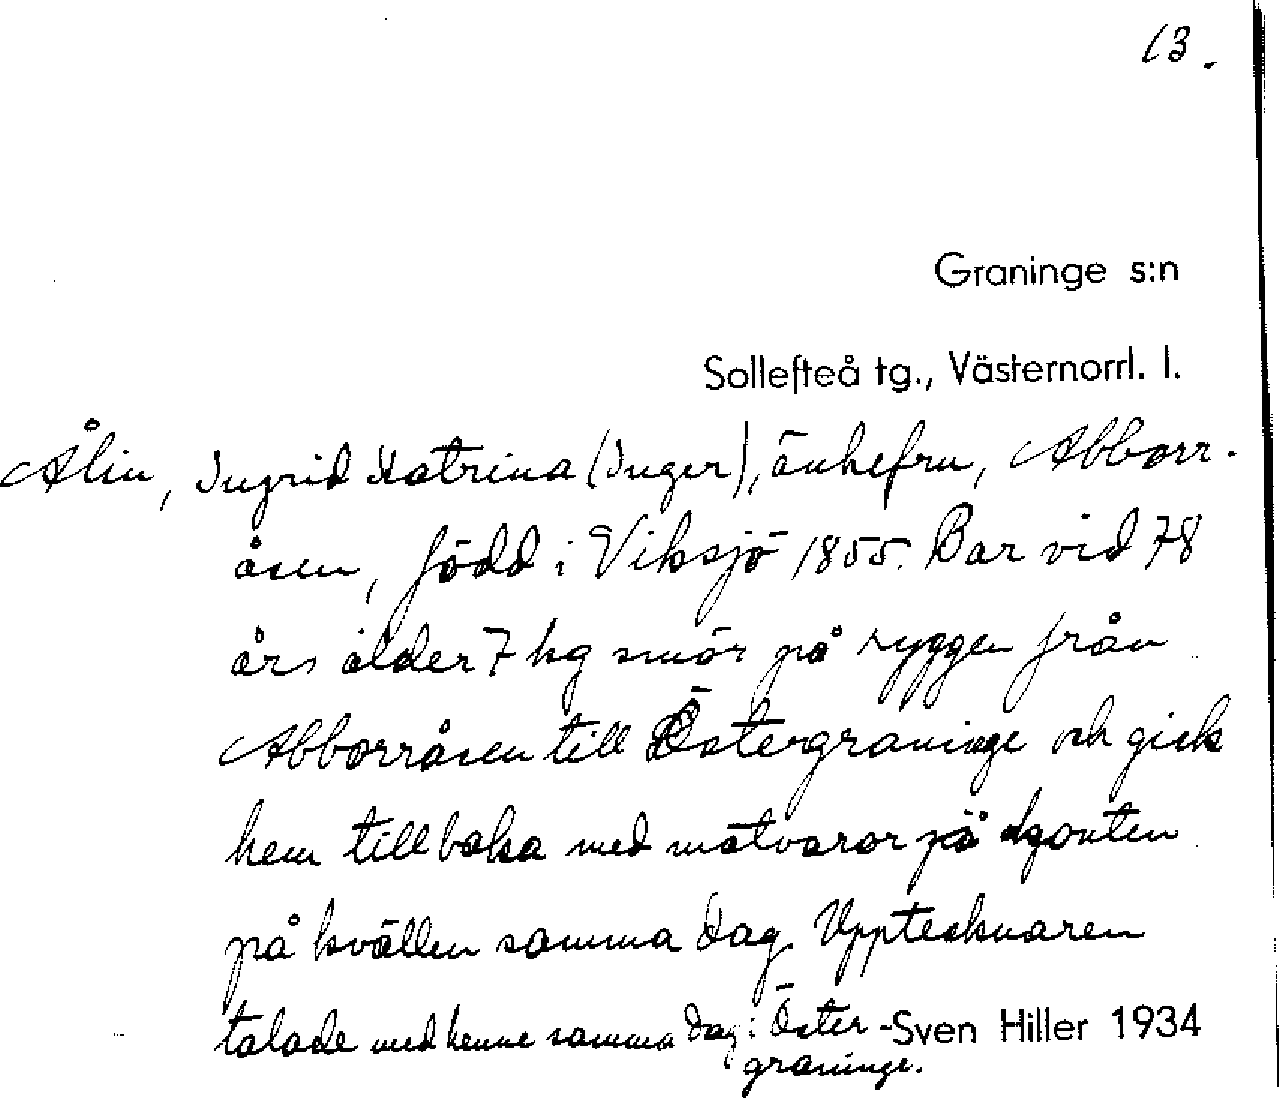 13.
Graninge s:n
Sollefteå tg., Västernorrl. l.
Ålin, Ingrid Katrina (Inger), änkefru, Abborr-
åsen, född i Viksjö 1855. Bar vid 78
års ålder 7 kg smör på ryggen från
Abborråsen till Östergraninge och gick
hem tillbaka med matvaror på konten
på kvällen samma dag. Upptecknaren
talade med henne samma dag i Öster- Sven Hiller 1934
graninge.